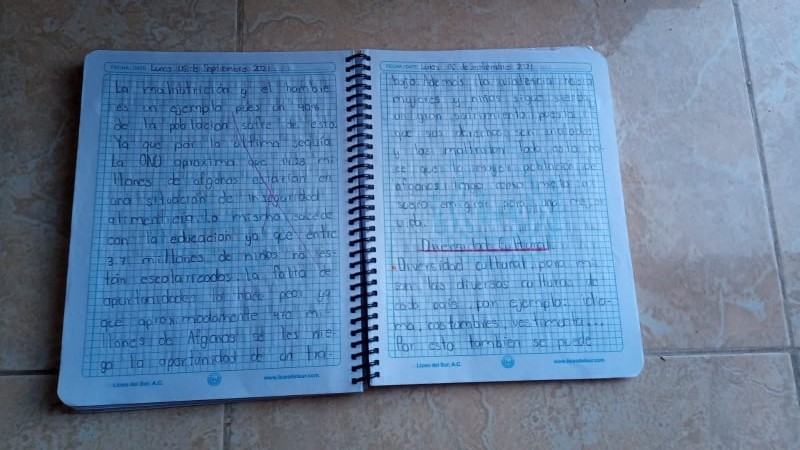 FECHA / DATE: Lunes 06 de Septiembre 2021
La malnutrición y el hambre
es un ejemplo pues un 40%
de la población sufre de esta.
Ya que por la última sequía
La ONU aproxima que 11.28 mi-
llones de afganas estarían en
una situación de Inseguridad
alimenticia. Lo mismo sucede
con la educación ya que entre
3.7 millones de niños no es-
tán escolarizados. La falta de
oportunidades lo hace peor ya
que aproximadamente 410 mi-
llones de Afganas se les nie-
ga la oportunidad de un tra-
Liceo del Sur, A.C.
www.liceodelsur.com
FECHA / DATE: Lunes 06 de Septiembre 2021
bajo. Además la violencia
mujeres y niñas sigue siendo
un gran sufrimiento puesto
que sus derechos son violados
y las maltratan. Todo esto
que la mayor
afganos tenga como meta el
sueño emigrar para una mejor
vida.
Diversidad cultural
• Diversidad cultural para mi
son las diversas culturas de
cada país por ejemplo: idio-
ma, costumbres, vestimenta...
Por esto también se puede
Liceo del Sur, A.C.
www.liceodelsur.com